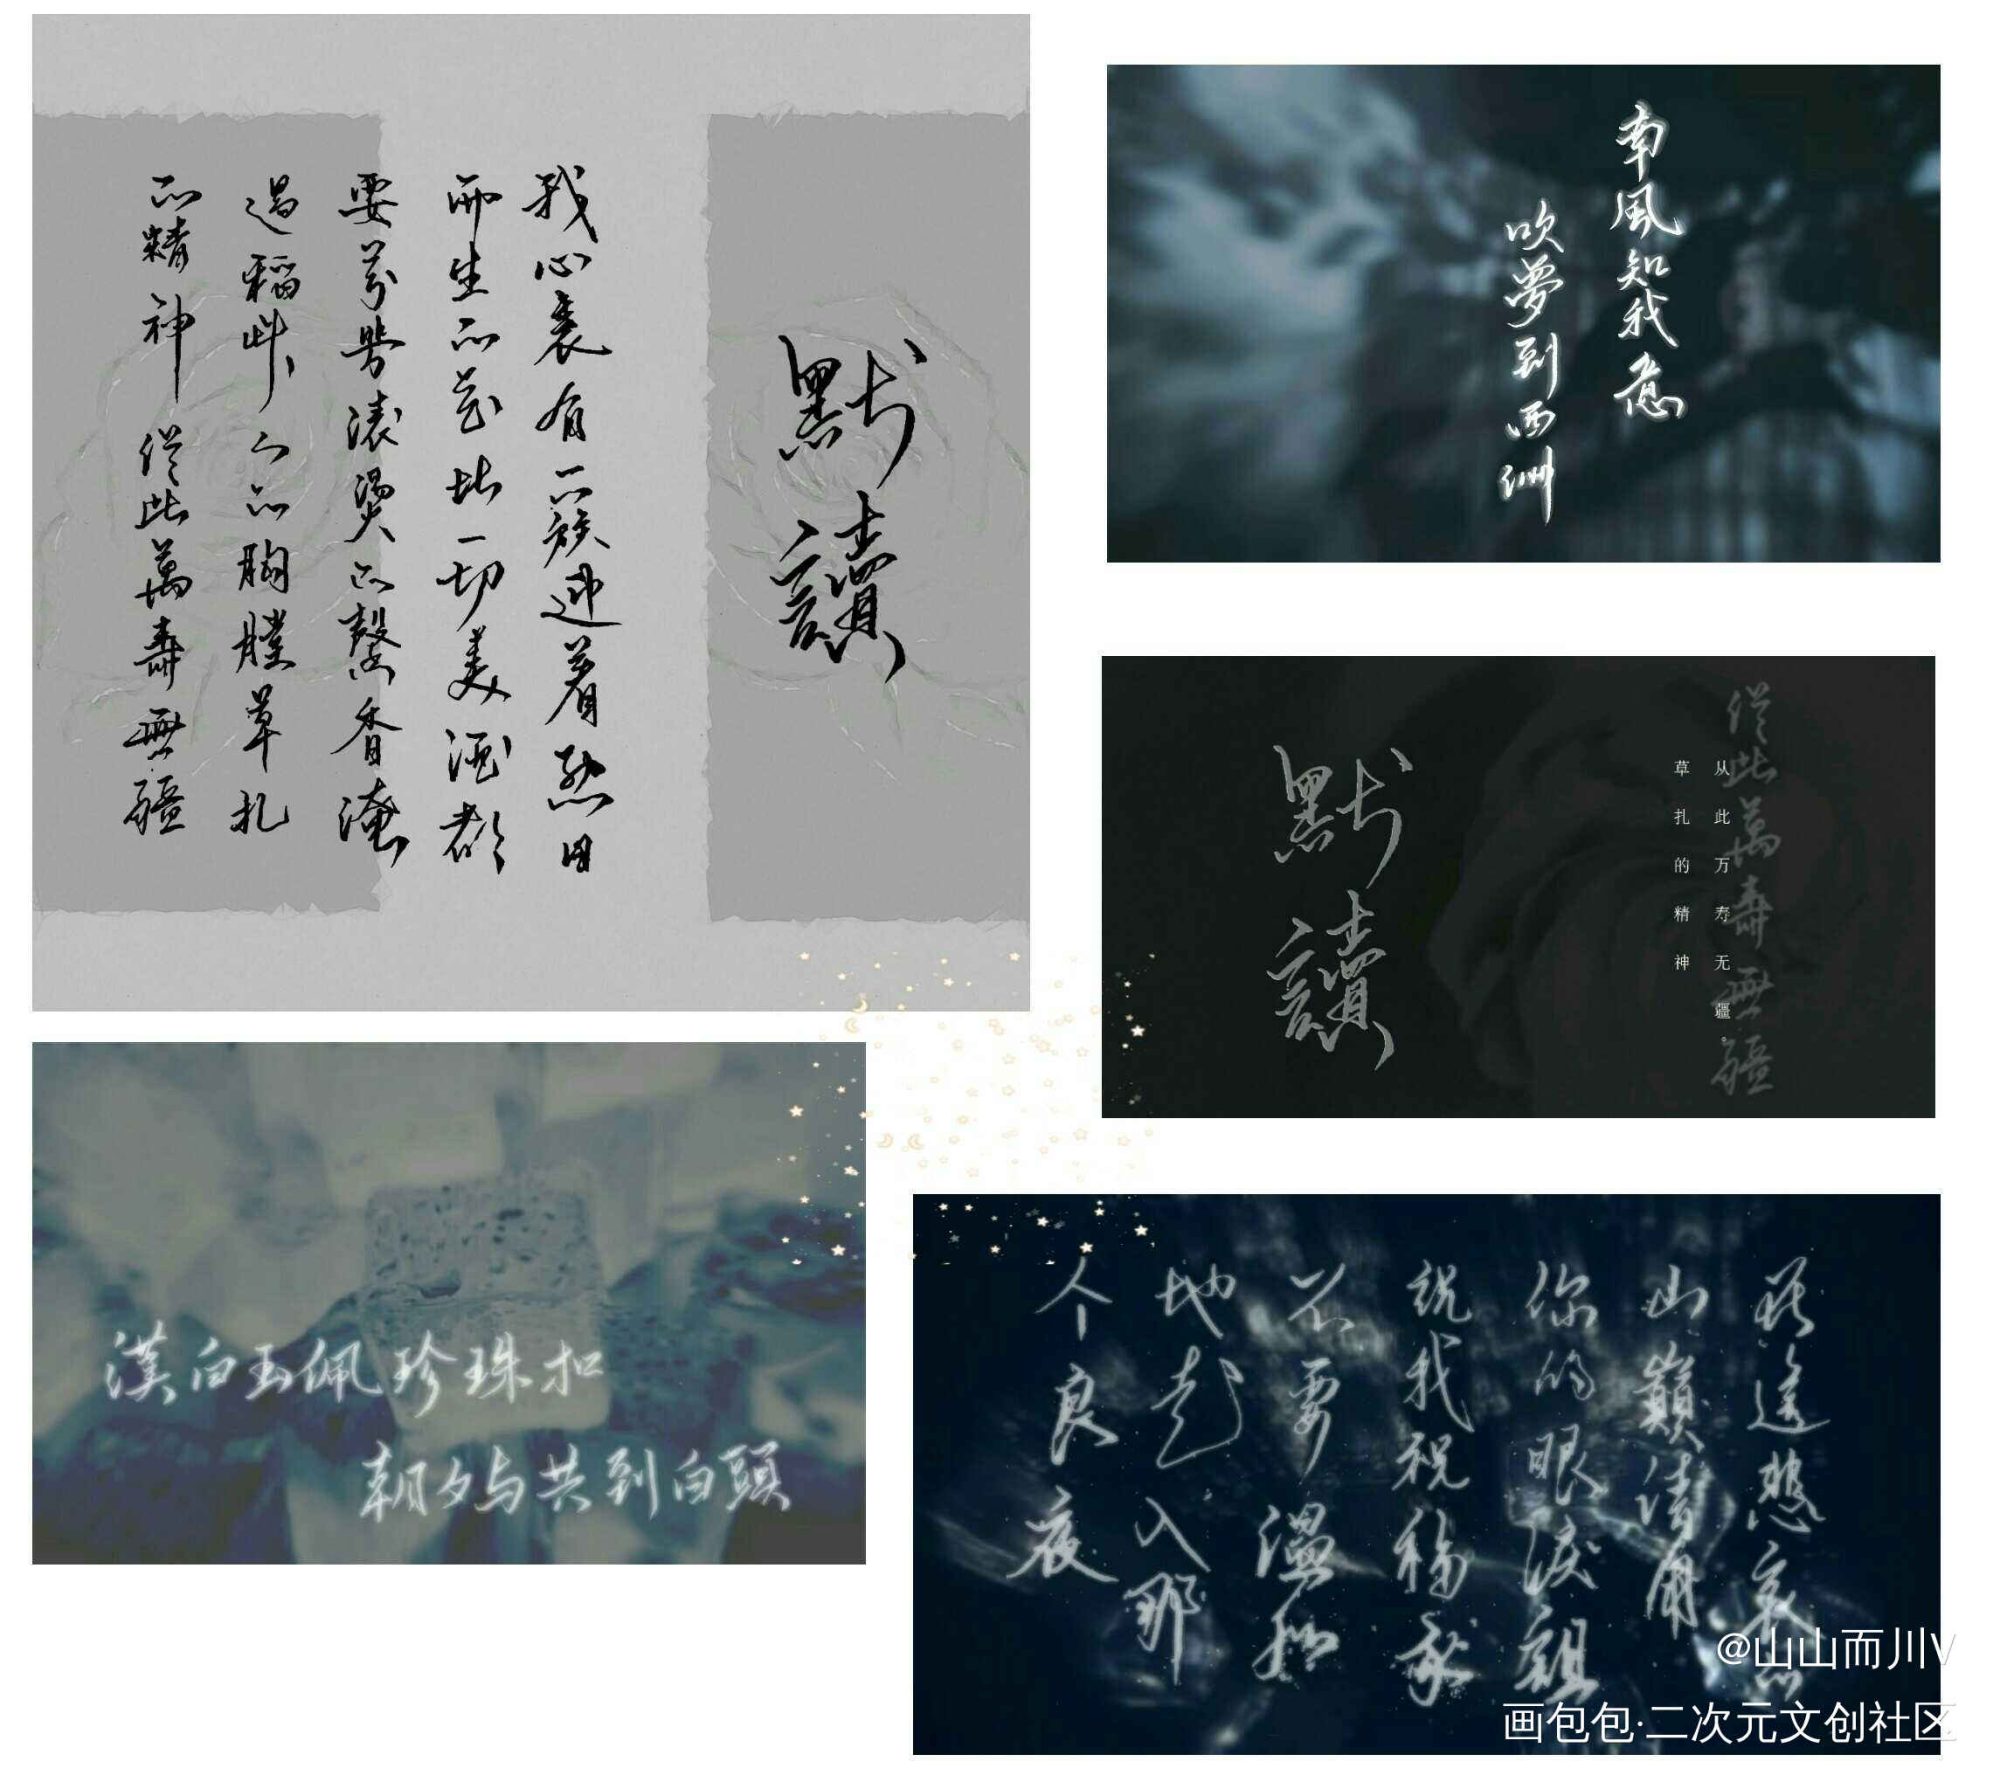 默讀
我心裏有一簇迎着烈日
而生的花比一切美酒都
要芬芳滚燙的馨香淹
過稻草人的胸膛草扎
的精神 從此萬壽無疆
南風知我意
吹夢到西洲
默讀
從此萬壽無疆
从此万寿无疆。
草扎的精神
漢白玉佩珍珠扣
朝夕与共到白頭
在這悲哀的
山巔請用
你的眼淚詛
咒我祝福我
不要溫和
地走入那
个良夜
@山山而川V
画包包·二次元文创社区